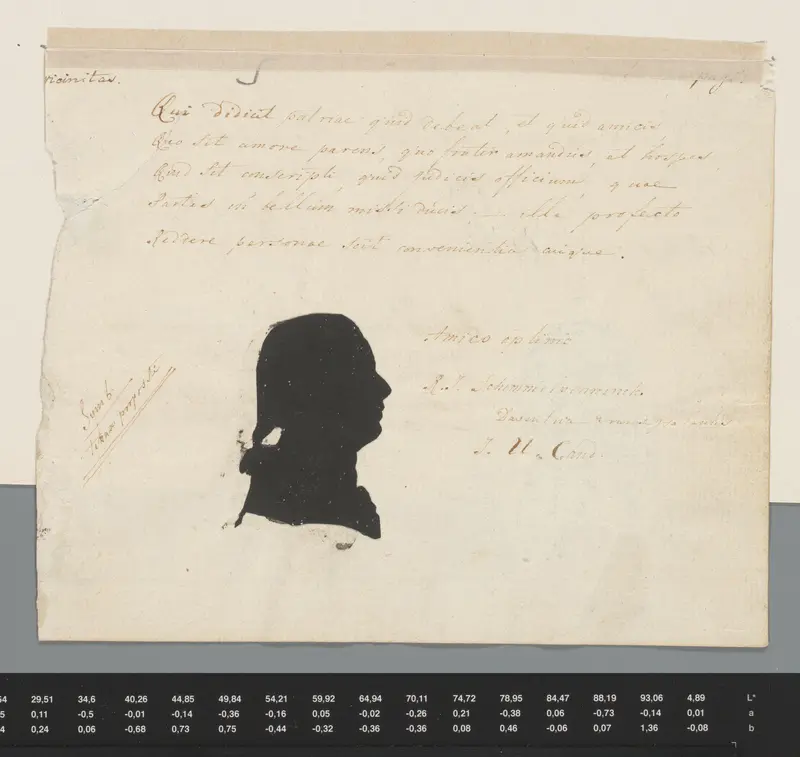 vicinitas.
Qui didicit patriae quid debeat, et quid amicis,
Quo sit amore parens, quo frater amandus, et hospes,
Quid sit conscripti, quid judicis officium, quae
Partes in bellum missi ducis — ille profecto
Reddere personae scit convenientia cuique.
Amico optimo
R. J. Schimmelpenninck
J. U. Cand.
Symb.
29,51 34,6 40,26 44,85 49,84 54,21 59,92 64,94 70,11 74,72 78,95 84,47 88,19 93,06 4,89 L*
0,11 -0,5 -0,01 -0,14 -0,36 -0,16 0,05 -0,02 -0,26 0,21 -0,38 0,06 -0,73 -0,14 0,01 a
0,24 0,06 -0,68 0,73 0,75 -0,44 -0,32 -0,36 -0,36 0,08 0,46 -0,06 0,07 1,36 -0,08 b